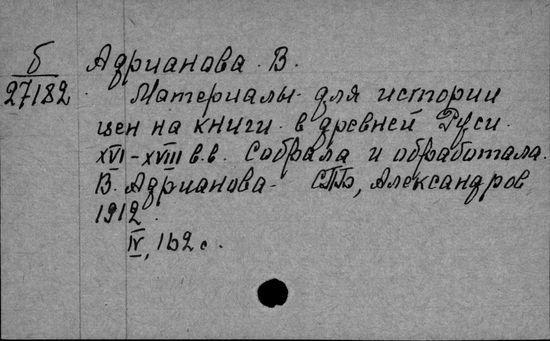 б
27182
Адрианова В.
Материалы для истории
цен на книги в древней Руси
XVI-XVIII в.в. Собрала и обработала
В. Адрианова. СПБ, Александров
1912.
IV, 162 с.